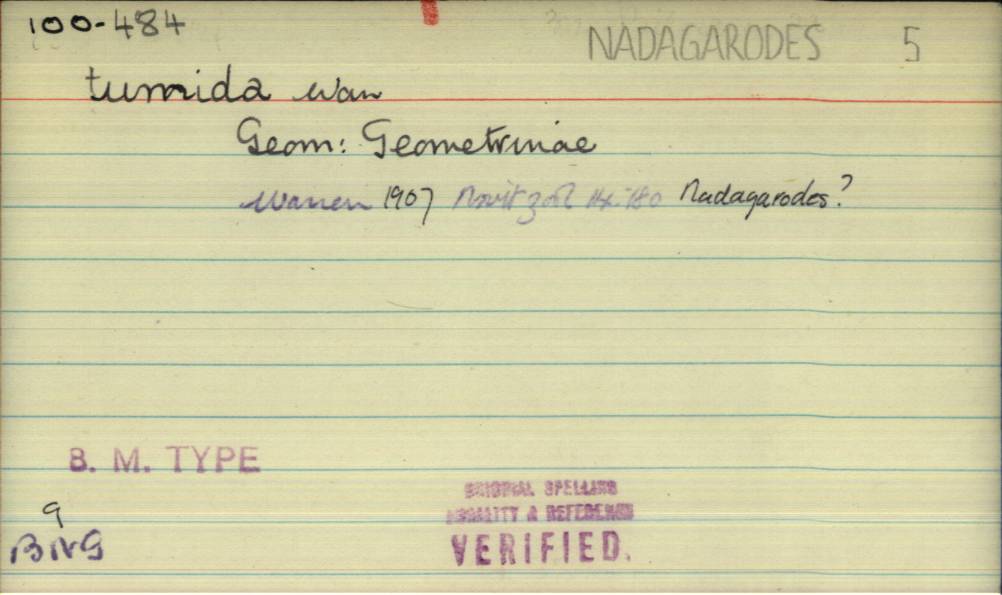 100-484
NADAGARODES 5
tumida War
Geom: Geometrinae
Warren 1907 Novit Zool 14:180 Nadagarodes?
B. M. TYPE
ORIGINAL SPELLING
LOCALITY & REFERENCE
VERIFIED.
9
BNG